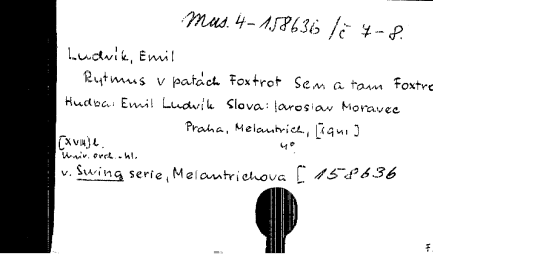 Mus. 4-158636/č 7-8.
Ludvík, Emil
Rytmus v patách Foxtrot Sem a tam Foxtro
Hudba: Emil Ludvík Slova: Jaroslav Moravec
Praha, Melantrich, [1941]
[XVIII] l. 4°
Univ. orch. - hl.
v. Swing serie, Melantrichova [ 158636
F.